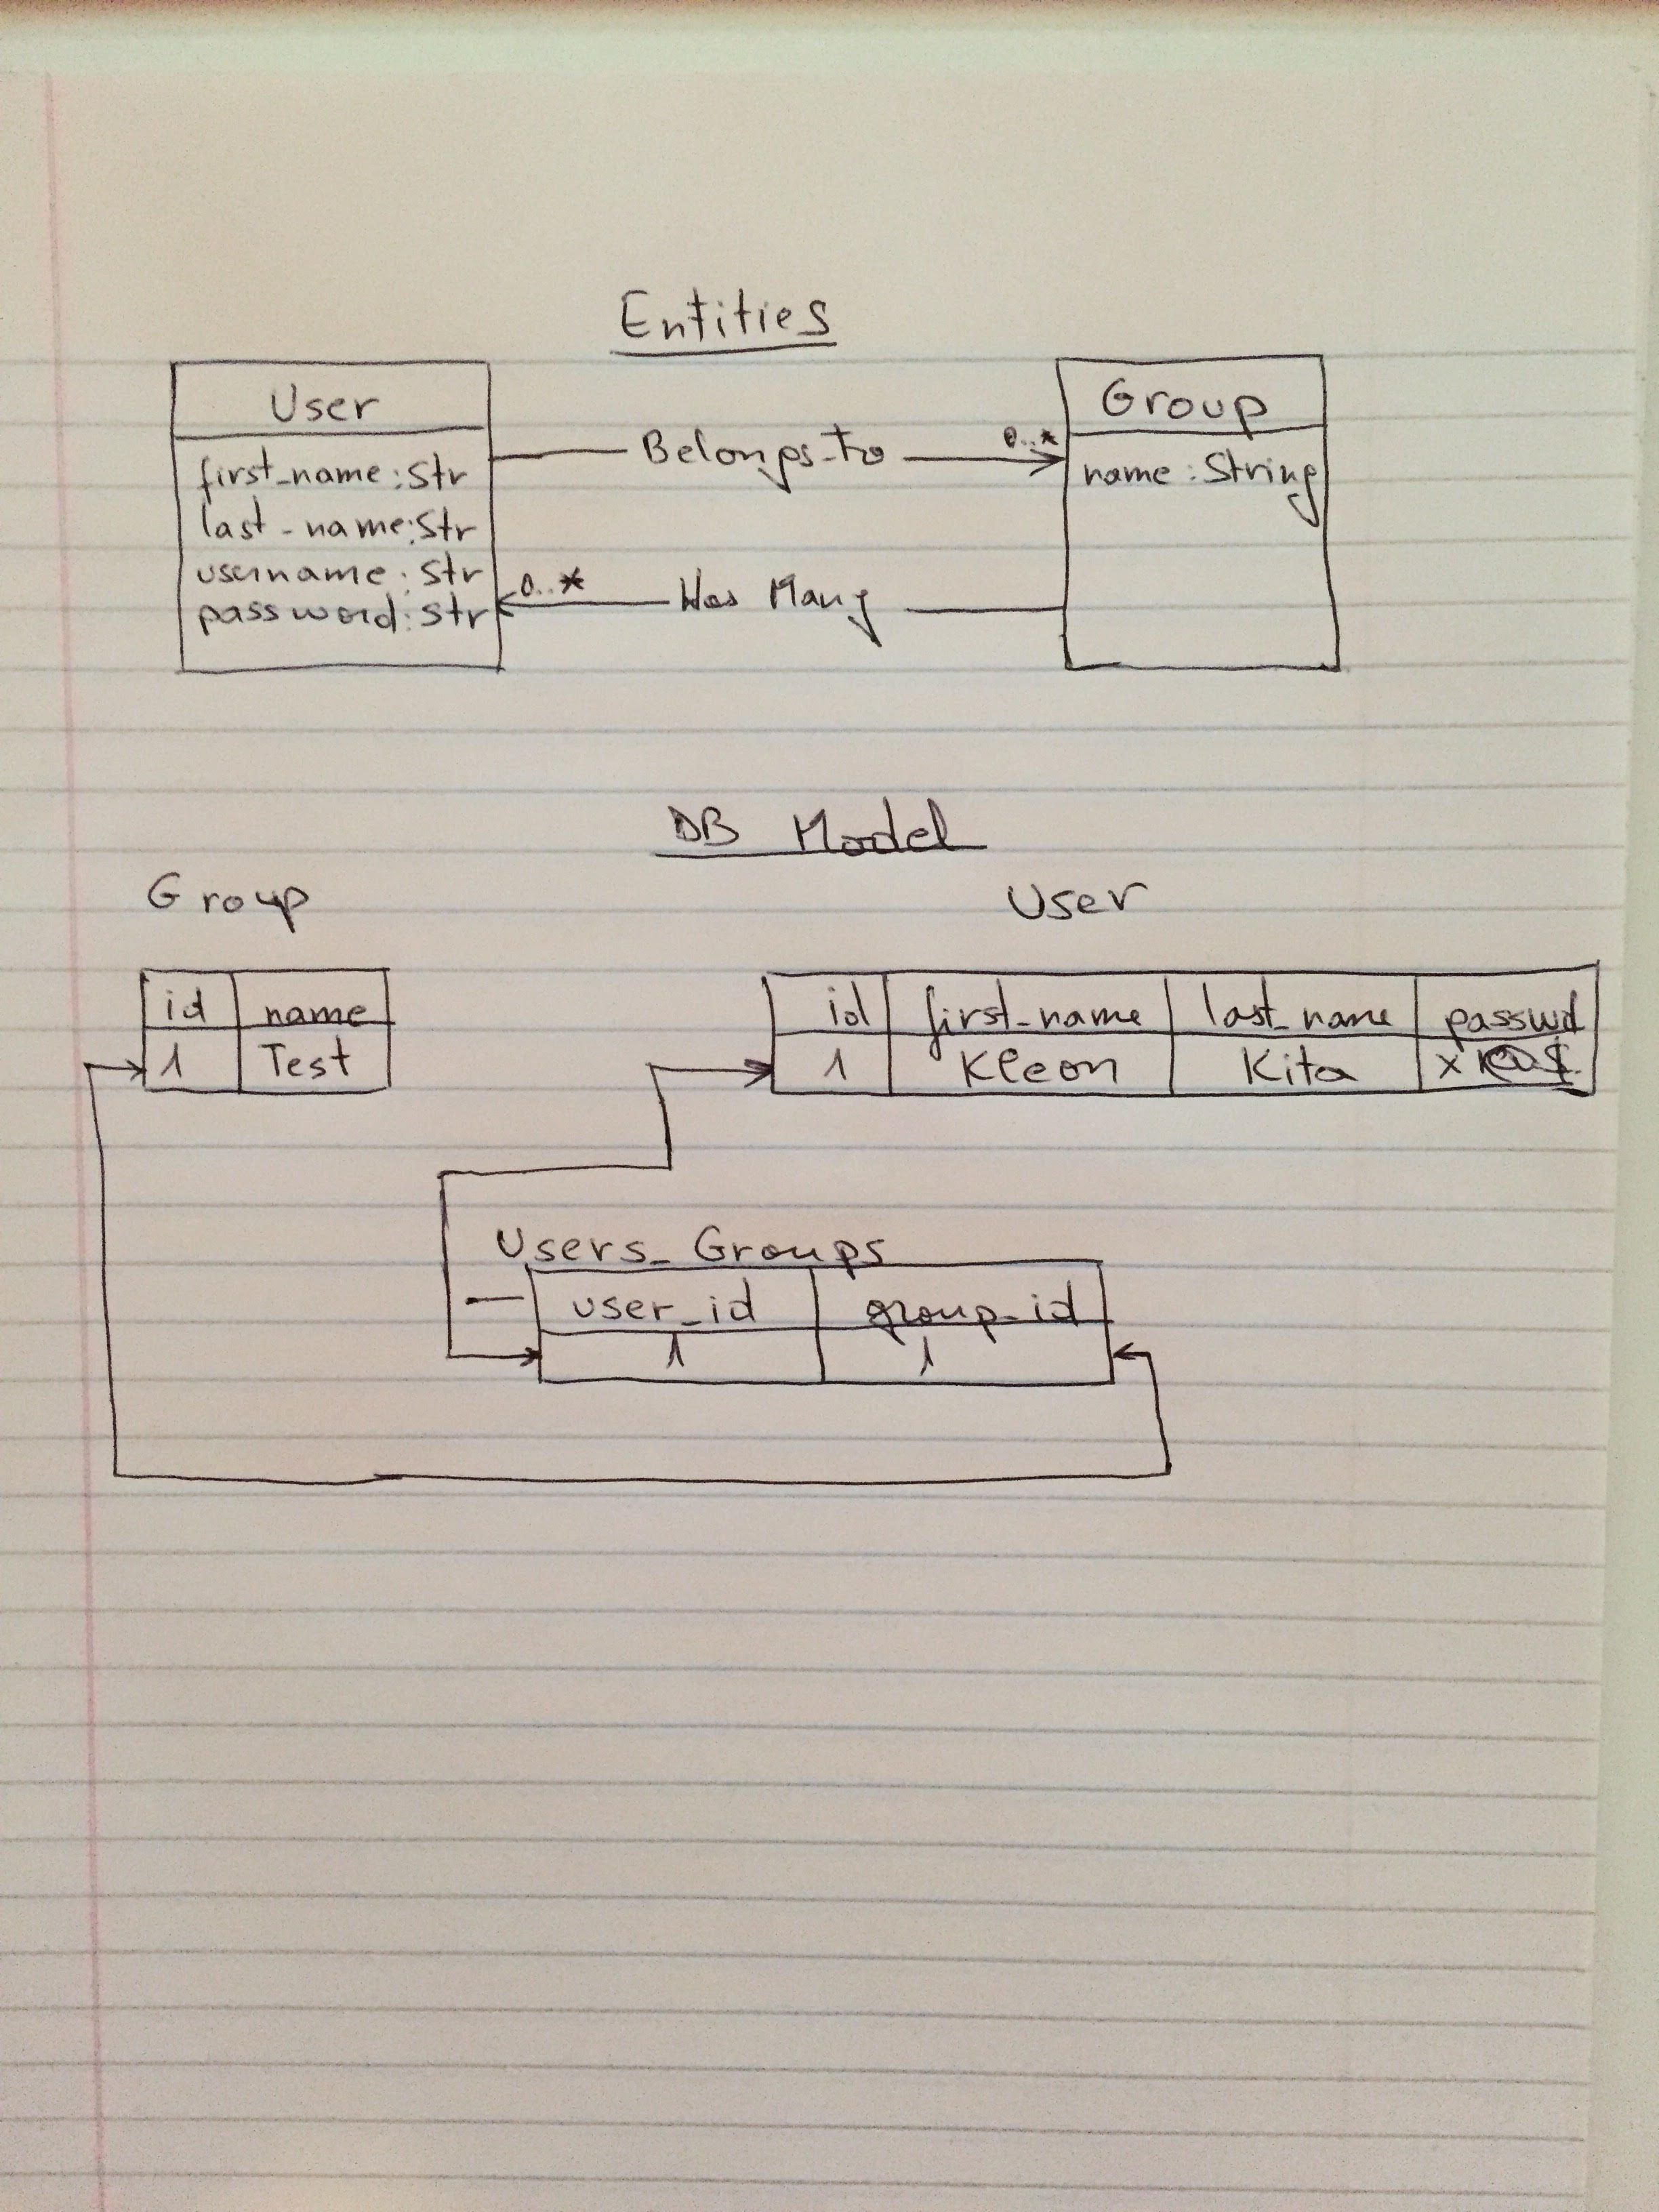 Entities
User
first_name:Str
last_name:Str
username:Str
password:Str
Belongs-to
0..*
Group
name:String
0..*
Has Many
DB Model
Group
id name
1 Test
User
id first_name last_name passwd
1 Kleon Kita
Users_Groups
user_id group_id
1 1